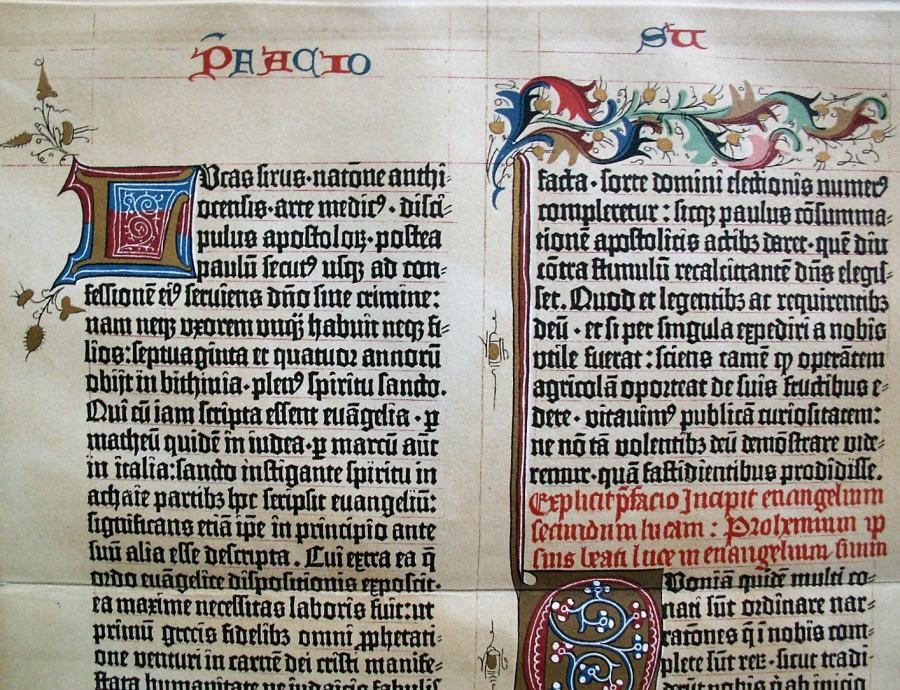 P̄FACIO
Lucas sirus·natõne anthi-
ocensis·arte medicꝰ·disci-
pulus apostoloꝝ·postea
paulū secutꝰ usqꝫ ad con-
fessionē eiꝰ seruiens dño sine crimine:
nam neqꝫ vxorem vnq̄ʒ habuit neqꝫ fi-
lios:septuaginta et quatuor annorū
obijt in bithinia·plenꝰ spiritu sancto.
Qui cū iam scripta essent euāgelia·p
matheū quidē in iudea·p marcū aūt
in italia:sancto instigante spiritu in
achaie partibꝫ hoc scripsit euangeliū:
significans etiā ipe in principio ante
suū alia esse descripta. Cui extra ea q̄
ordo euāgelice dispositionis exposcit·
ea maxime necessitas laboris fuit:ut
primū grecis fidelibꝫ omni ꝓphetati-
one venturi in carnē dei cristi manife-
stata humanitate ne iudaicis fabulis
SU
facta·sorte domini electionis numerꝰ
compleretur:sicqꝫ paulus cōsumma-
tionē apostolicis actibꝫ daret·quē diu
cōtra stimulū recalcitrantē dñs elegis-
set. Quod et legentibꝫ ac requirentibꝫ
deū·et si per singula expediri a nobis
vtile fuerat:sciens tamē ꝙ operātem
agricolā oporteat de suis fructibus e-
dere·vitauimꝰ publicā curiositatem:
ne nō tā volentibꝫ deū demōstrare vide-
remur·quā fastidientibus prodidisse.
Explicit p̄facio Incipit euangelium
secundum lucam: Prohemium ip
sius beati luce in euangelium suum
Quoniā quidē multi co-
nati sūt ordinare nar-
ratōnes q̄ i nobis com-
plete sūt reꝝ·sicut tradi-
derūt nobis q̄ ab inicio